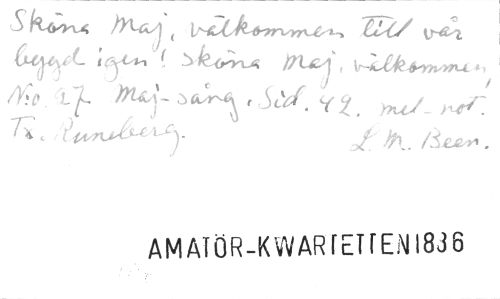 Sköna Maj, välkommen till vår
bygd igen! Sköna Maj, välkommen,
N:o. 27 Maj-sång. Sid. 42. mel-not.
Tx. Runeberg. L. M. Been.
AMATÖR-KWARTETTEN1836